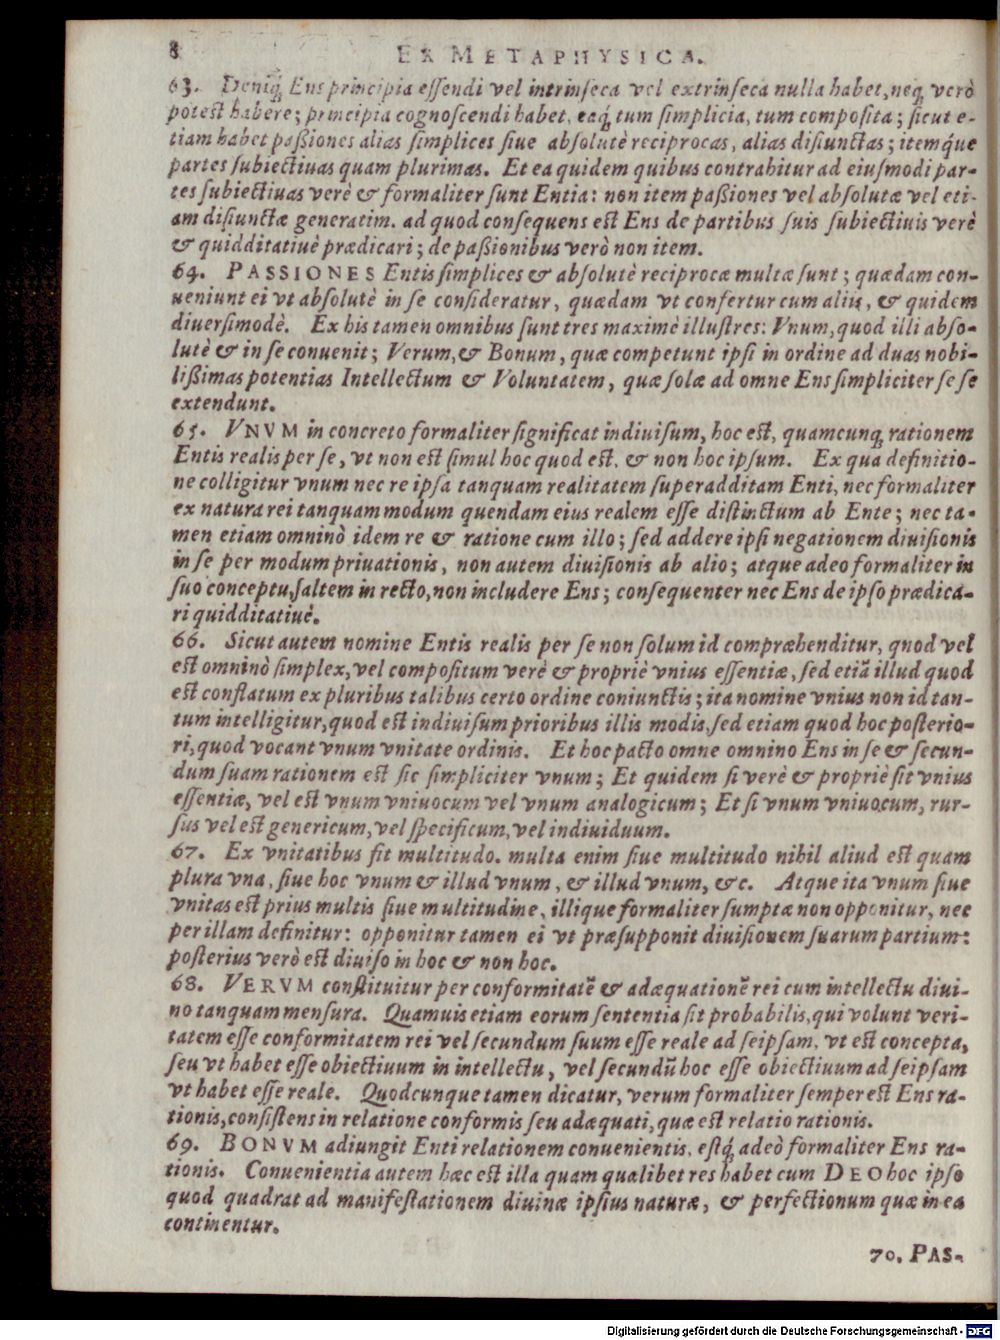 8
EX METAPHYSICA.
63. Deniq́; Ens principia eſſendi vel intrinſeca vel extrinſeca nulla habet, neq; verò
poteſt habere; principia cognoſcendi habet, eaq́; tum ſimplicia, tum compoſita; ſicut e-
tiam habet paßiones alias ſimplices ſiue abſolutè reciprocas, alias diſiunctas; itemq́ue
partes ſubiectiuas quam plurimas. Et ea quidem quibus contrahitur ad eiuſmodi par-
tes ſubiectiuas verè & formaliter ſunt Entia: non item paßiones vel abſolutæ vel eti-
am diſiunctæ generatim. ad quod conſequens eſt Ens de partibus ſuis ſubiectiuis verè
& quidditatiuè prædicari; de paßionibus verò non item.
64. PASSIONES Entis ſimplices & abſolutè reciprocæ multæ ſunt; quædam con-
ueniunt ei vt abſolutè in ſe conſideratur, quædam vt confertur cum aliis, & quidem
diuerſimodè. Ex his tamen omnibus ſunt tres maximè illuſtres: Vnum, quod illi abſo-
lutè & in ſe conuenit; Verum, & Bonum, quæ competunt ipſi in ordine ad duas nobi-
lißimas potentias Intellectum & Voluntatem, quæ ſolæ ad omne Ens ſimpliciter ſe ſe
extendunt.
65. VNVM in concreto formaliter ſignificat indiuiſum, hoc eſt, quamcunq; rationem
Entis realis per ſe, vt non eſt ſimul hoc quod eſt, & non hoc ipſum. Ex qua definitio-
ne colligitur vnum nec re ipſa tanquam realitatem ſuperadditam Enti, nec formaliter
ex natura rei tanquam modum quendam eius realem eſſe diſtinctum ab Ente; nec ta-
men etiam omninò idem re & ratione cum illo; ſed addere ipſi negationem diuiſionis
in ſe per modum priuationis, non autem diuiſionis ab alio; atque adeo formaliter in
ſuo conceptu, ſaltem in recto, non includere Ens; conſequenter nec Ens de ipſo prædica-
ri quidditatiuè.
66. Sicut autem nomine Entis realis per ſe non ſolum id compræhenditur, quod vel
eſt omninò ſimplex, vel compoſitum verè & propriè vnius eſſentiæ, ſed etiā illud quod
eſt conflatum ex pluribus talibus certo ordine coniunctis; ita nomine vnius non id tan-
tum intelligitur, quod eſt indiuiſum prioribus illis modis, ſed etiam quod hoc poſterio-
ri, quod vocant vnum vnitate ordinis. Et hoc pacto omne omnino Ens in ſe & ſecun-
dum ſuam rationem eſt ſic ſimpliciter vnum; Et quidem ſi verè & propriè ſit vnius
eſſentiæ, vel eſt vnum vniuocum vel vnum analogicum; Et ſi vnum vniuocum, rur-
ſus vel eſt genericum, vel ſpecificum, vel indiuiduum.
67. Ex vnitatibus fit multitudo. multa enim ſiue multitudo nihil aliud eſt quam
plura vna, ſiue hoc vnum & illud vnum, & illud vnum, &c. Atque ita vnum ſiue
vnitas eſt prius multis ſiue multitudine, illique formaliter ſumptæ non opponitur, nec
per illam definitur: opponitur tamen ei vt præſupponit diuiſionem ſuarum partium:
poſterius verò eſt diuiſo in hoc & non hoc.
68. VERVM conſtituitur per conformitatē & adæquationē rei cum intellectu diui-
no tanquam menſura. Quamuis etiam eorum ſententia ſit probabilis, qui volunt veri-
tatem eſſe conformitatem rei vel ſecundum ſuum eſſe reale ad ſeipſam, vt eſt concepta,
ſeu vt habet eſſe obiectiuum in intellectu, vel ſecundū hoc eſſe obiectiuum ad ſeipſam
vt habet eſſe reale. Quodcunque tamen dicatur, verum formaliter ſemper eſt Ens ra-
tionis, conſiſtens in relatione conformis ſeu adæquati, quæ eſt relatio rationis.
69. BONVM adiungit Enti relationem conuenientis, eſtq́; adeò formaliter Ens ra-
tionis. Conuenientia autem hæc eſt illa quam qualibet res habet cum DEO hoc ipſo
quod quadrat ad manifeſtationem diuinæ ipſius naturæ, & perfectionum quæ in ea
continentur.
70. PAS-
Digitalisierung gefördert durch die Deutsche Forschungsgemeinschaft - DFG